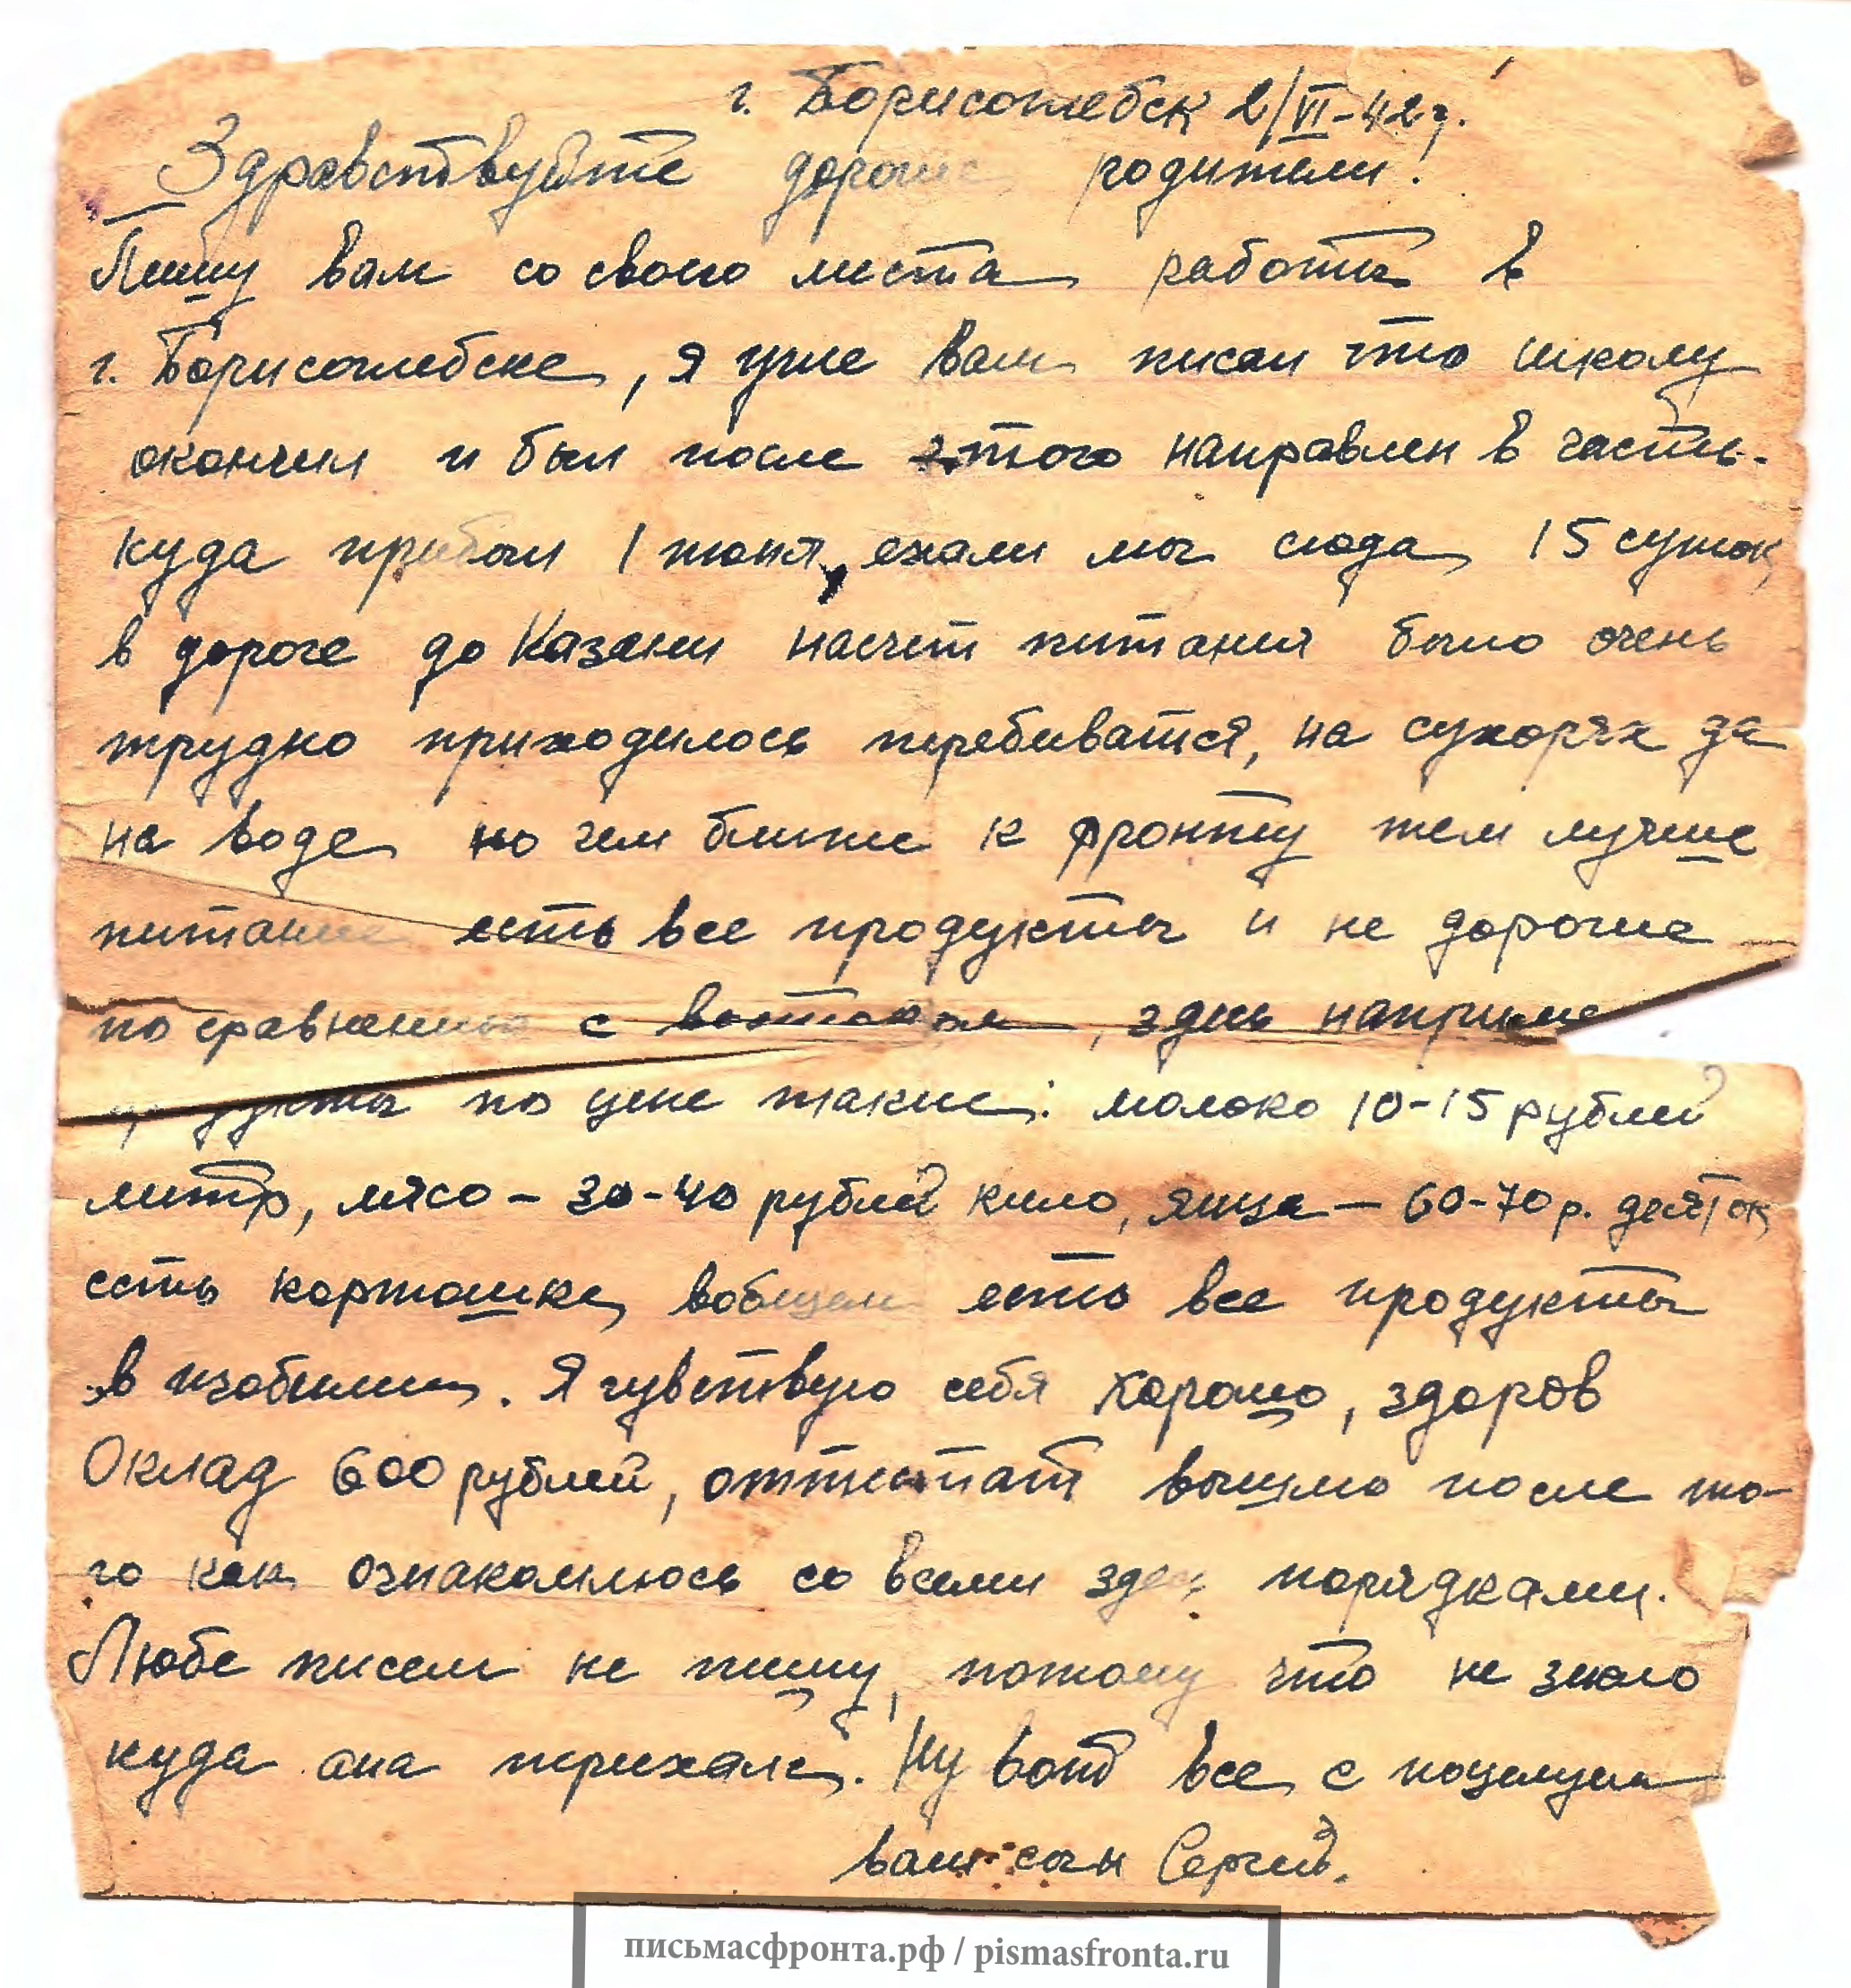 г. Борисоглебск 2/VI-42г.
Здравствуйте дорогие родители!
Пишу вам со своего места работы в
г. Борисоглебске, я уже вам писал что школу
окончил и был после этого направлен в часть.
куда прибыл 1 июня, ехали мы сюда 15 суток
в дороге до Казани насчет питания было очень
трудно приходилось перебиваться, на сухарях да
на воде но чем ближе к фронту тем лучше
питание есть все продукты и не дорогие
по сравнению с востоком, здесь наприме
продукты по цене такие: молоко 10-15 рублей
литр, мясо - 30-40 рублей кило, яица - 60-70 р. десяток
есть картошка, вобщем есть все продукты
в изобилии. Я чувствую себя хорошо, здоров
Оклад 600 рублей, аттестат вышлю после то-
го как ознакомлюсь со всеми здесь порядками.
Любе писем не пишу, потому что не знаю
куда она переехала. Ну вот все, с поцелуем
ваш сын Сергей.
письмасфронта.рф / pismasfronta.ru